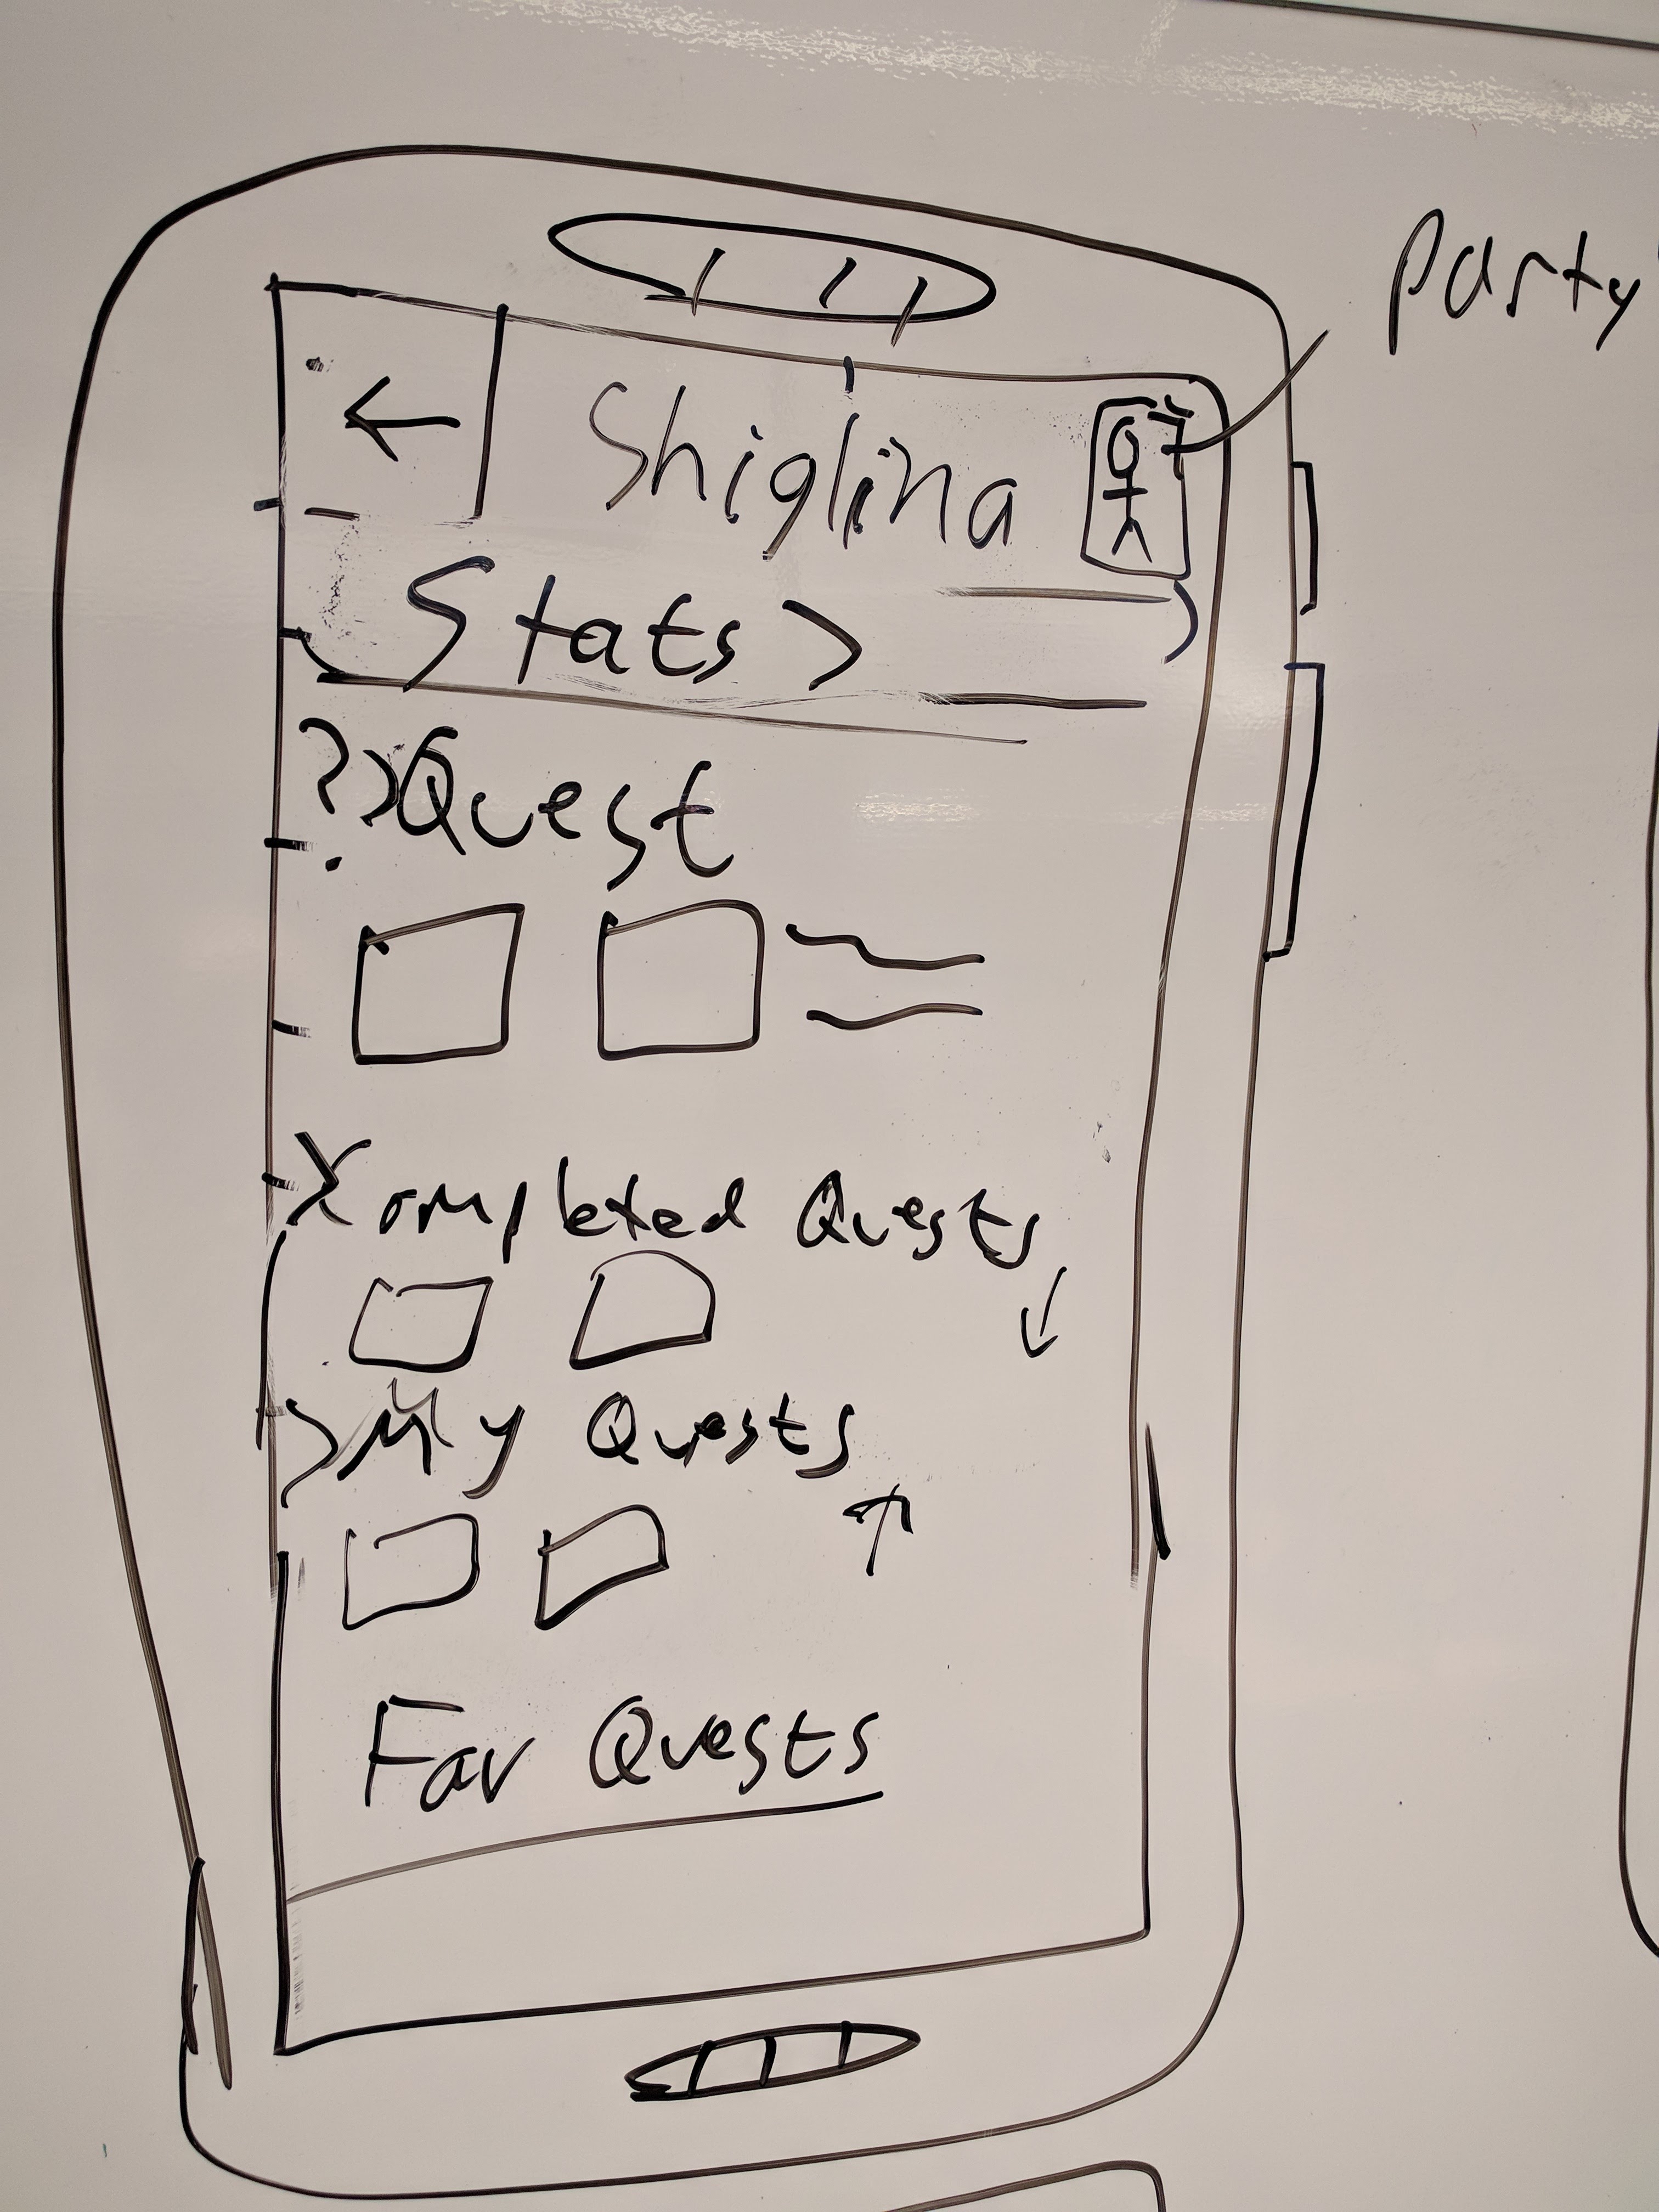 party
← Shiglina
Stats >
? > Quest
> Completed Quests
↓
> My Quests
↑
Fav Quests